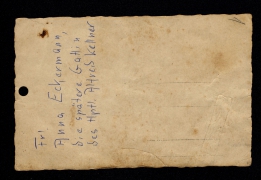 Frl
Anna Eckermann,
die spätere Gattin
des Hptl. Alfred Kellner